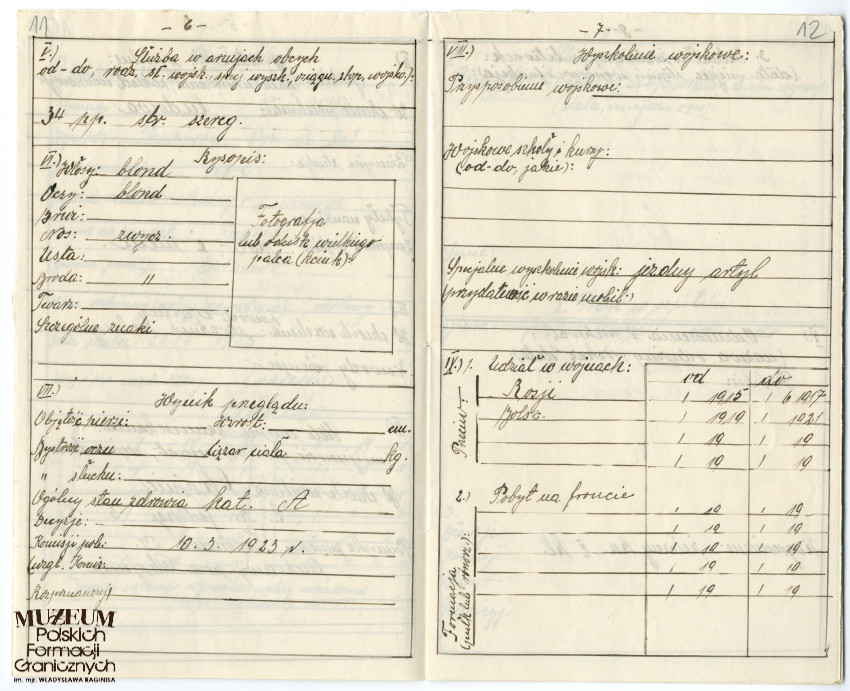 11
- 6 -
V.) Służba w armjach obcych
od-do, rodz. sł. wojsk., spej. wyszk., osiągn. stop. wojsk.):
34 pp. str. szereg.
VI.) Rysopis:
Włosy: blond
Oczy: blond
Brwi:
Nos: zwycz.
Usta:
Broda: "
Twarz:
Szczególne znaki
Fotografja
lub odcisk wielkiego
palca (kciuk):
VII.) Wynik przeglądu:
Objętość piersi: Wzrost: cm.
Bystrość oczu Ciężar ciała kg.
" słuchu:
Ogólny stan zdrowia kat. A
Decyzje: -
Komisji pob: 10. 3. 1923 r.
Rozpoznany)
MUZEUM
Polskich
Formacji
Granicznych
im. mjr. WŁADYSŁAWA RAGINISA
12
- 7 -
VIII.) Wyszkolenie wojskowe:
Przysposobienie wojskowe:
Wojskowe szkoły i kursy:
(od-do, jakie):
Specjalne wyszkolenie wojsk: jezdny artyl
(przydatność w razie mobil:)
IX.) 1. Udział w wojnach: od do
Przeciw:
Rosji 1 1915 1 6 1917
Bolsz. 1 1919 1 1921
1 19 1 19
1 19 1 19
2.) Pobyt na froncie
Formacja
(pułk lub równorz.):
1 19 1 19
1 19 1 19
1 19 1 19
1 19 1 19
1 19 1 19